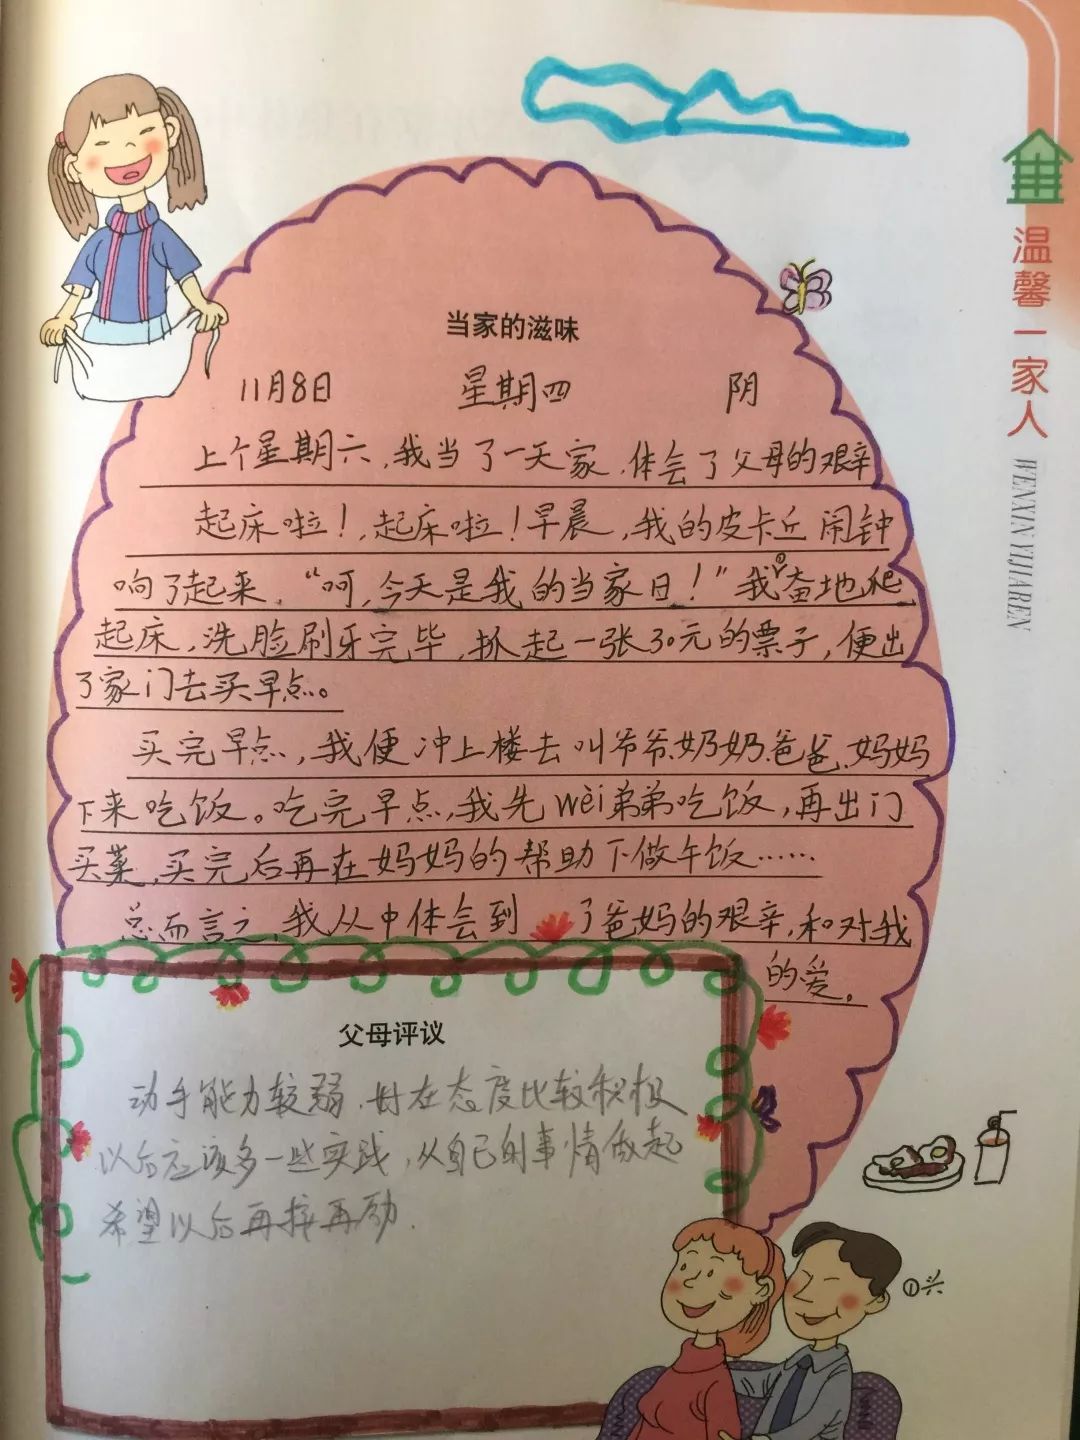 温馨一家人
WENXIN YIJIAREN
当家的滋味
11月8日 星期四 阴
上个星期六,我当了一天家,体会了父母的艰辛
起床啦!,起床啦!早晨,我的皮卡丘闹钟
响了起来,“呵,今天是我的当家日!”我奋地爬
起床,洗脸刷牙完毕,抓起一张30元的票子,便出
了家门去买早点。
买完早点,我便冲上楼去叫爷爷、奶奶、爸爸、妈妈
下来吃饭。吃完早点,我先wèi弟弟吃饭,再出门
买菜,买完后再在妈妈的帮助下做午饭……
总而言之,我从中体会到 了爸妈的艰辛,和对我
的爱。
父母评议
动手能力较弱,好在态度比较积极
以后应该多一些实践,从自己的事情做起
希望以后再接再励.
①兴